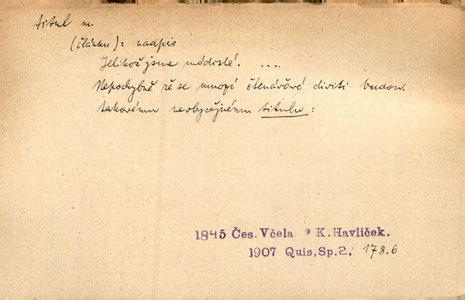 titul m.
(článku): nadpis
Jelikož jsme módisté. ...
Nepochybně že se mnozí čtenářové diviti budou
takovému neobyčejnému titulu:
1845 Čes. Včela * K. Havlíček.
1907 Quis, Sp. 2. 178.6